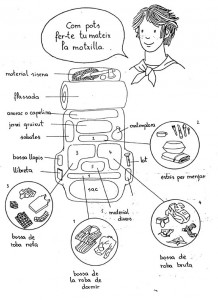 Com pots
fer-te tu mateix
la motxilla...
material sirena
flassada
anorac o capelina
jersei gruixut
sabates
cantimplora
2
1
bossa llapis
llibreta
3
4
5
lot
estris per menjar
sac
1 material
divers
3
bossa de
roba neta
5
bossa de
la roba de
dormir
4
bossa de
roba bruta